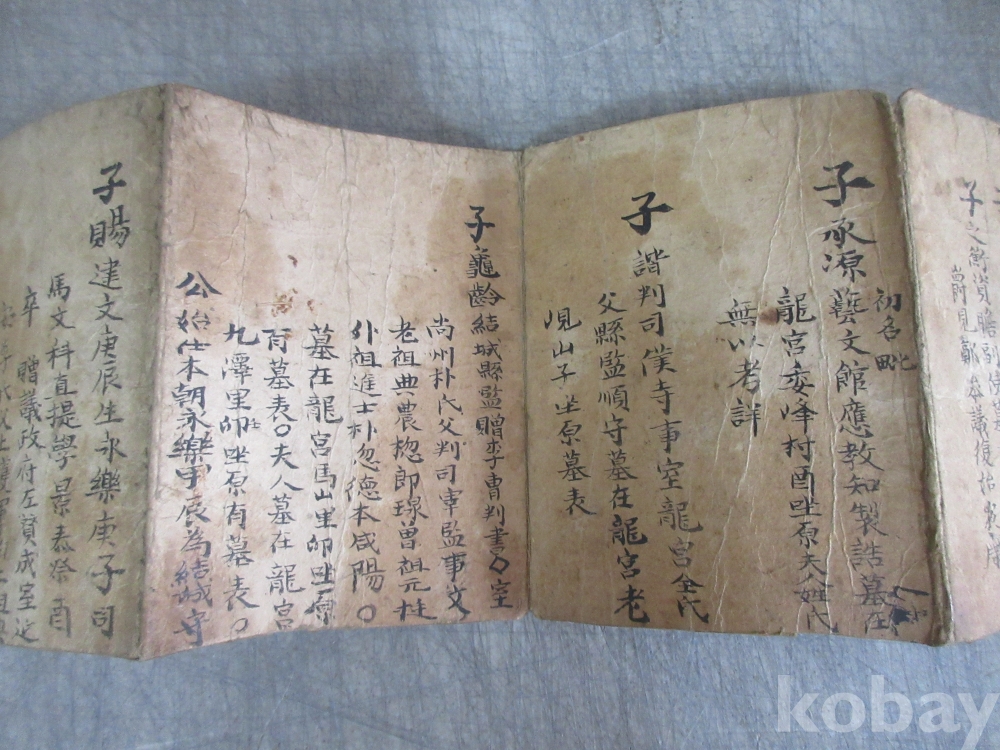 子之衡資贍
前見
子承源藝文館應教知製誥墓在
初名毗
龍宮委峰村酉坐原夫人姓氏
無以考詳
子諧判司僕寺事室龍宮全氏
父縣監順守墓在龍宮老
峴山子坐原墓表
子龜齡結城縣監贈李曹判書〇室
尚州朴氏父判司宰監事文
老祖典農楤郎琭曾祖元桂
外祖進士朴忽德本咸陽〇
墓在龍宮馬山里卯坐原
有墓表〇夫人墓在龍宮
九澤里卯坐原有墓表〇
公始仕本朝永樂甲辰為結城守
子賜建文庚辰生永樂庚子司
馬文科直提學景泰癸酉
卒 贈議政府左贊成室延
kobay